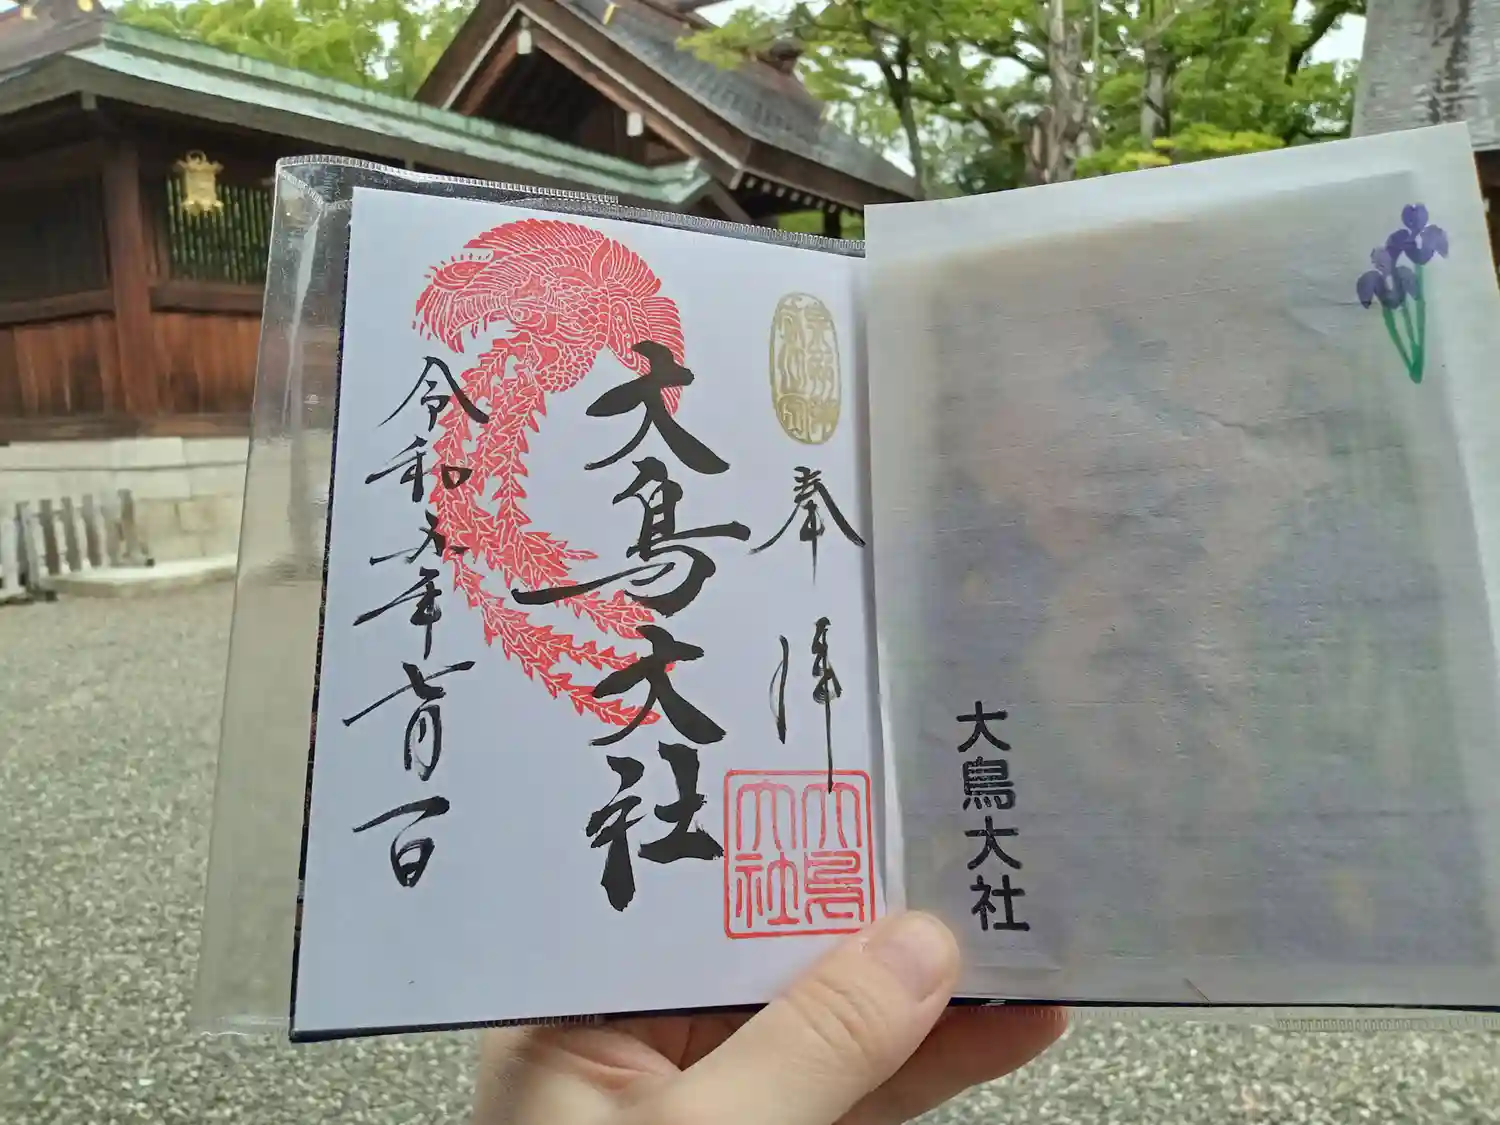 大鳥大社
奉拝
大鳥大社
大鳥大社
令和年七月一日